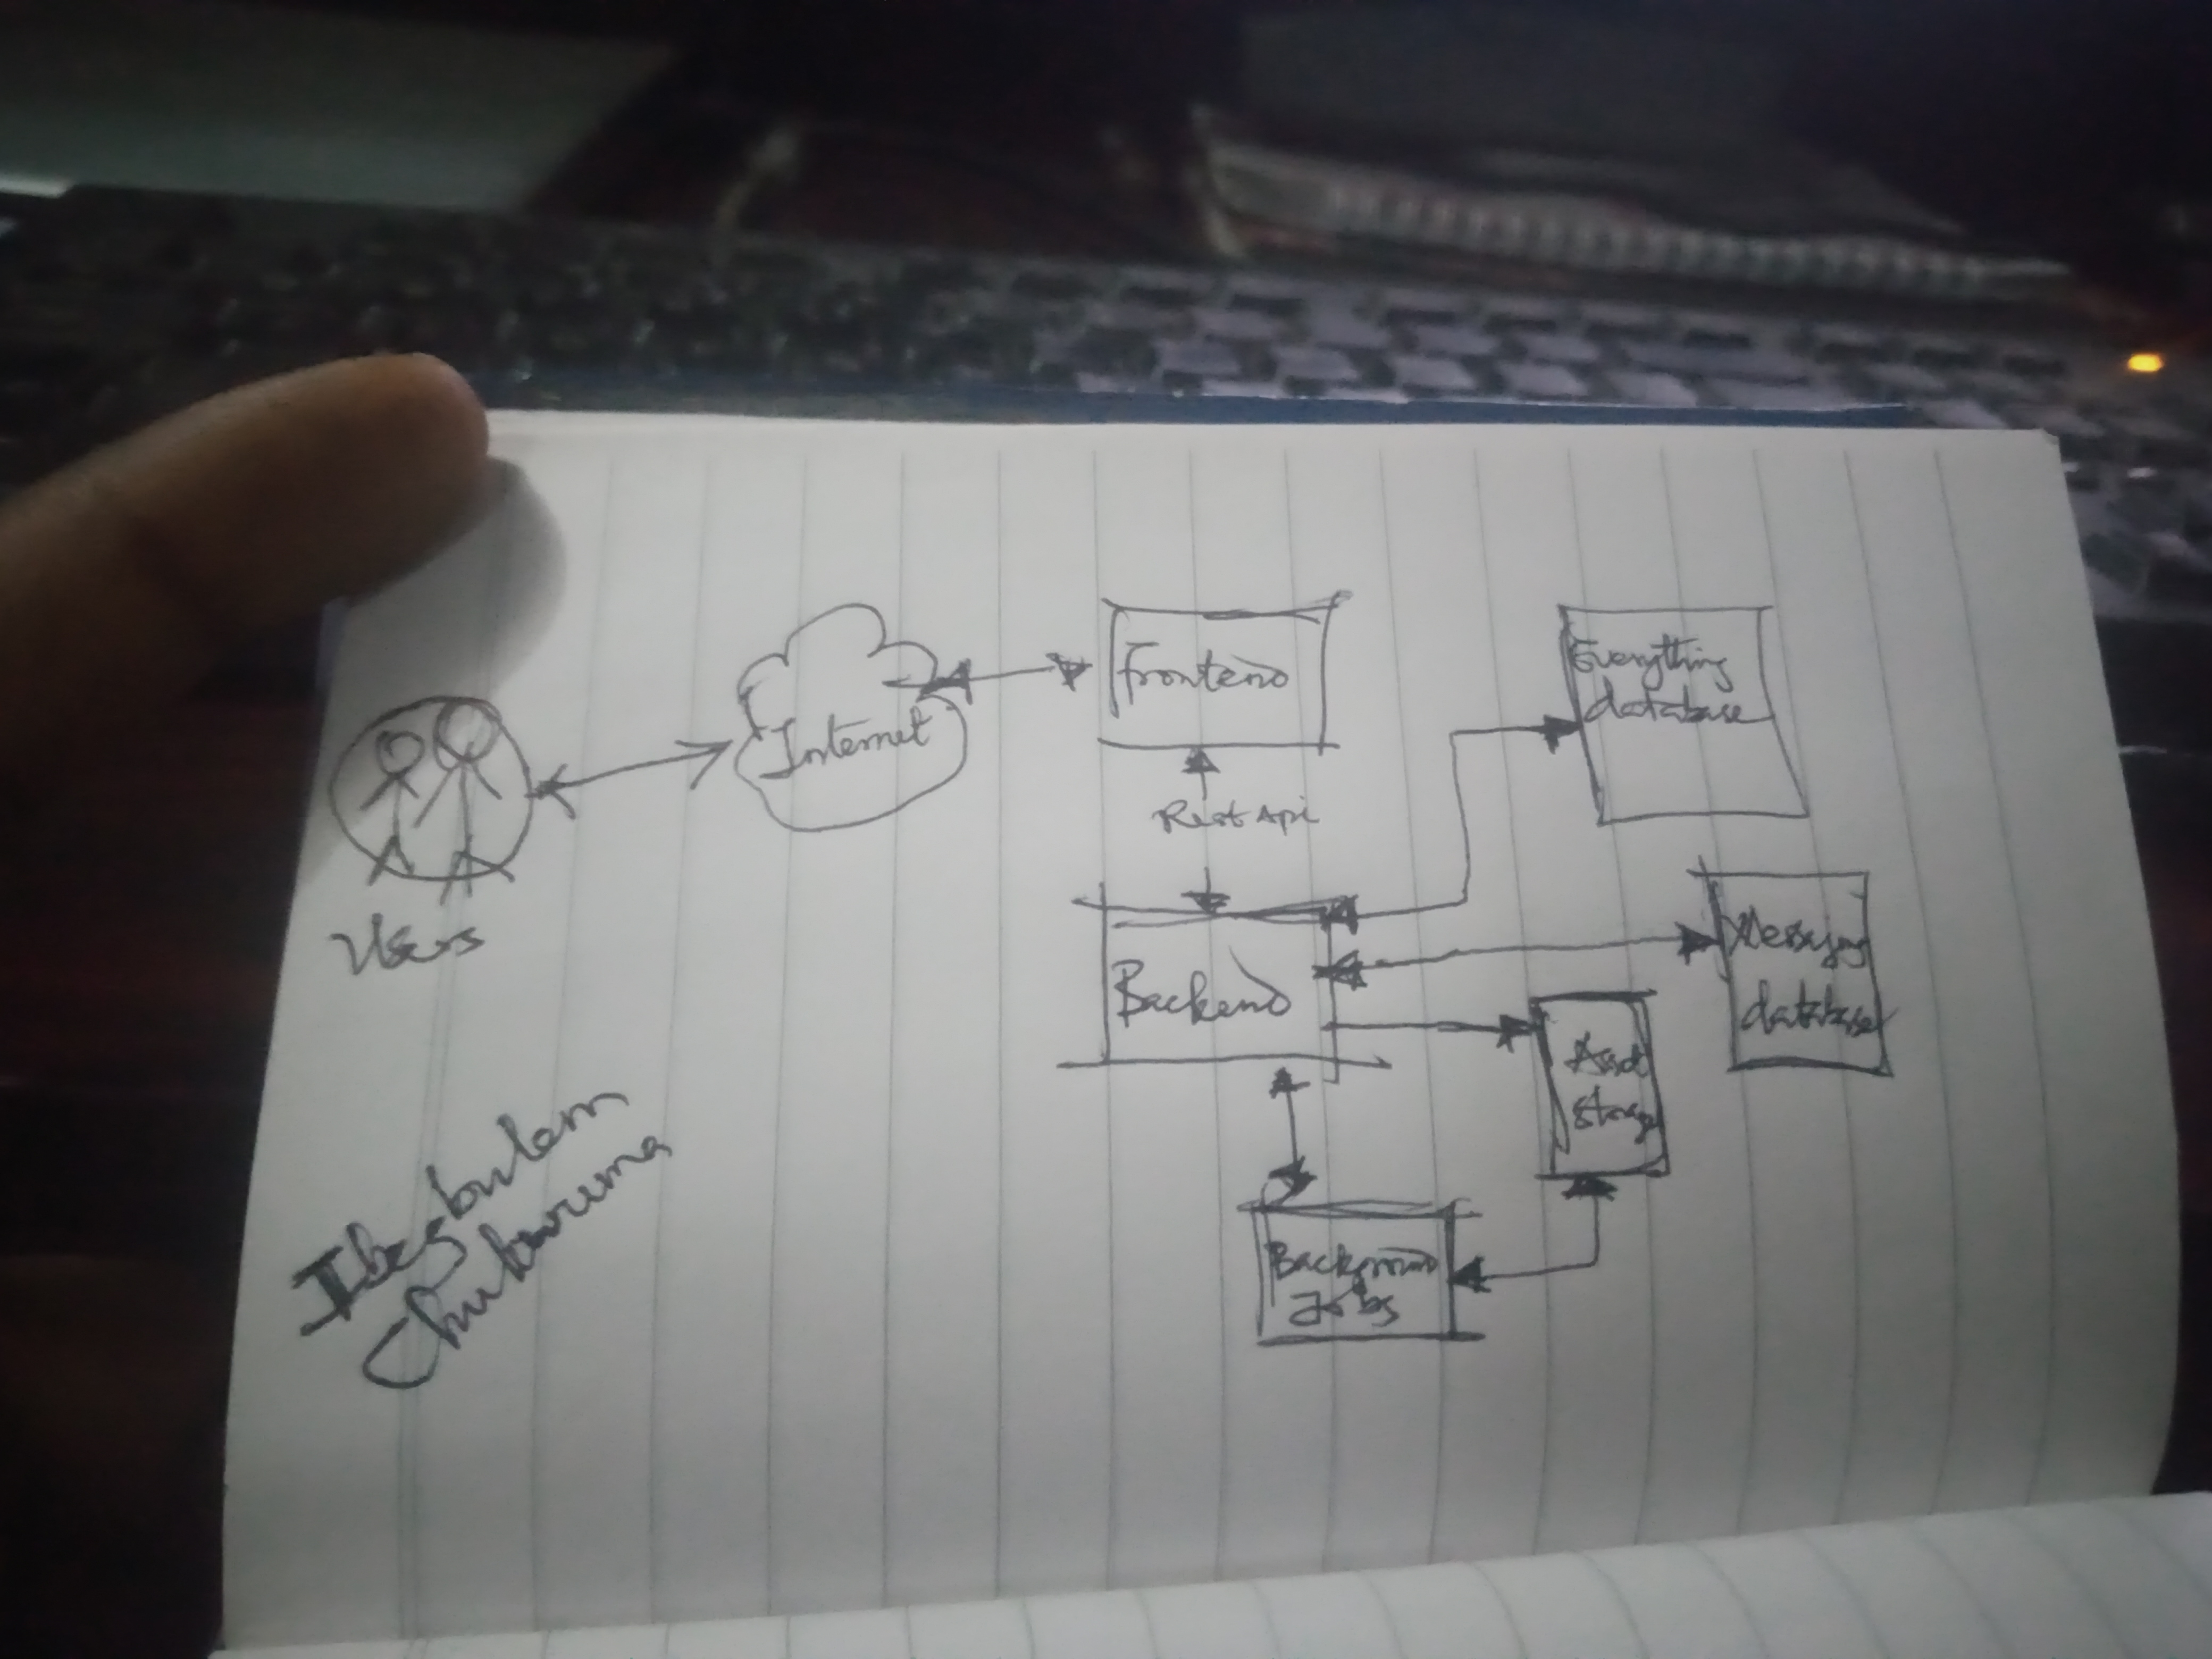 Users
Internet
Frontend
Rest Api
Backend
Everything
database
Messaging
database
Asset
storage
Background
Jobs
Ibegbulem
Chukwuma